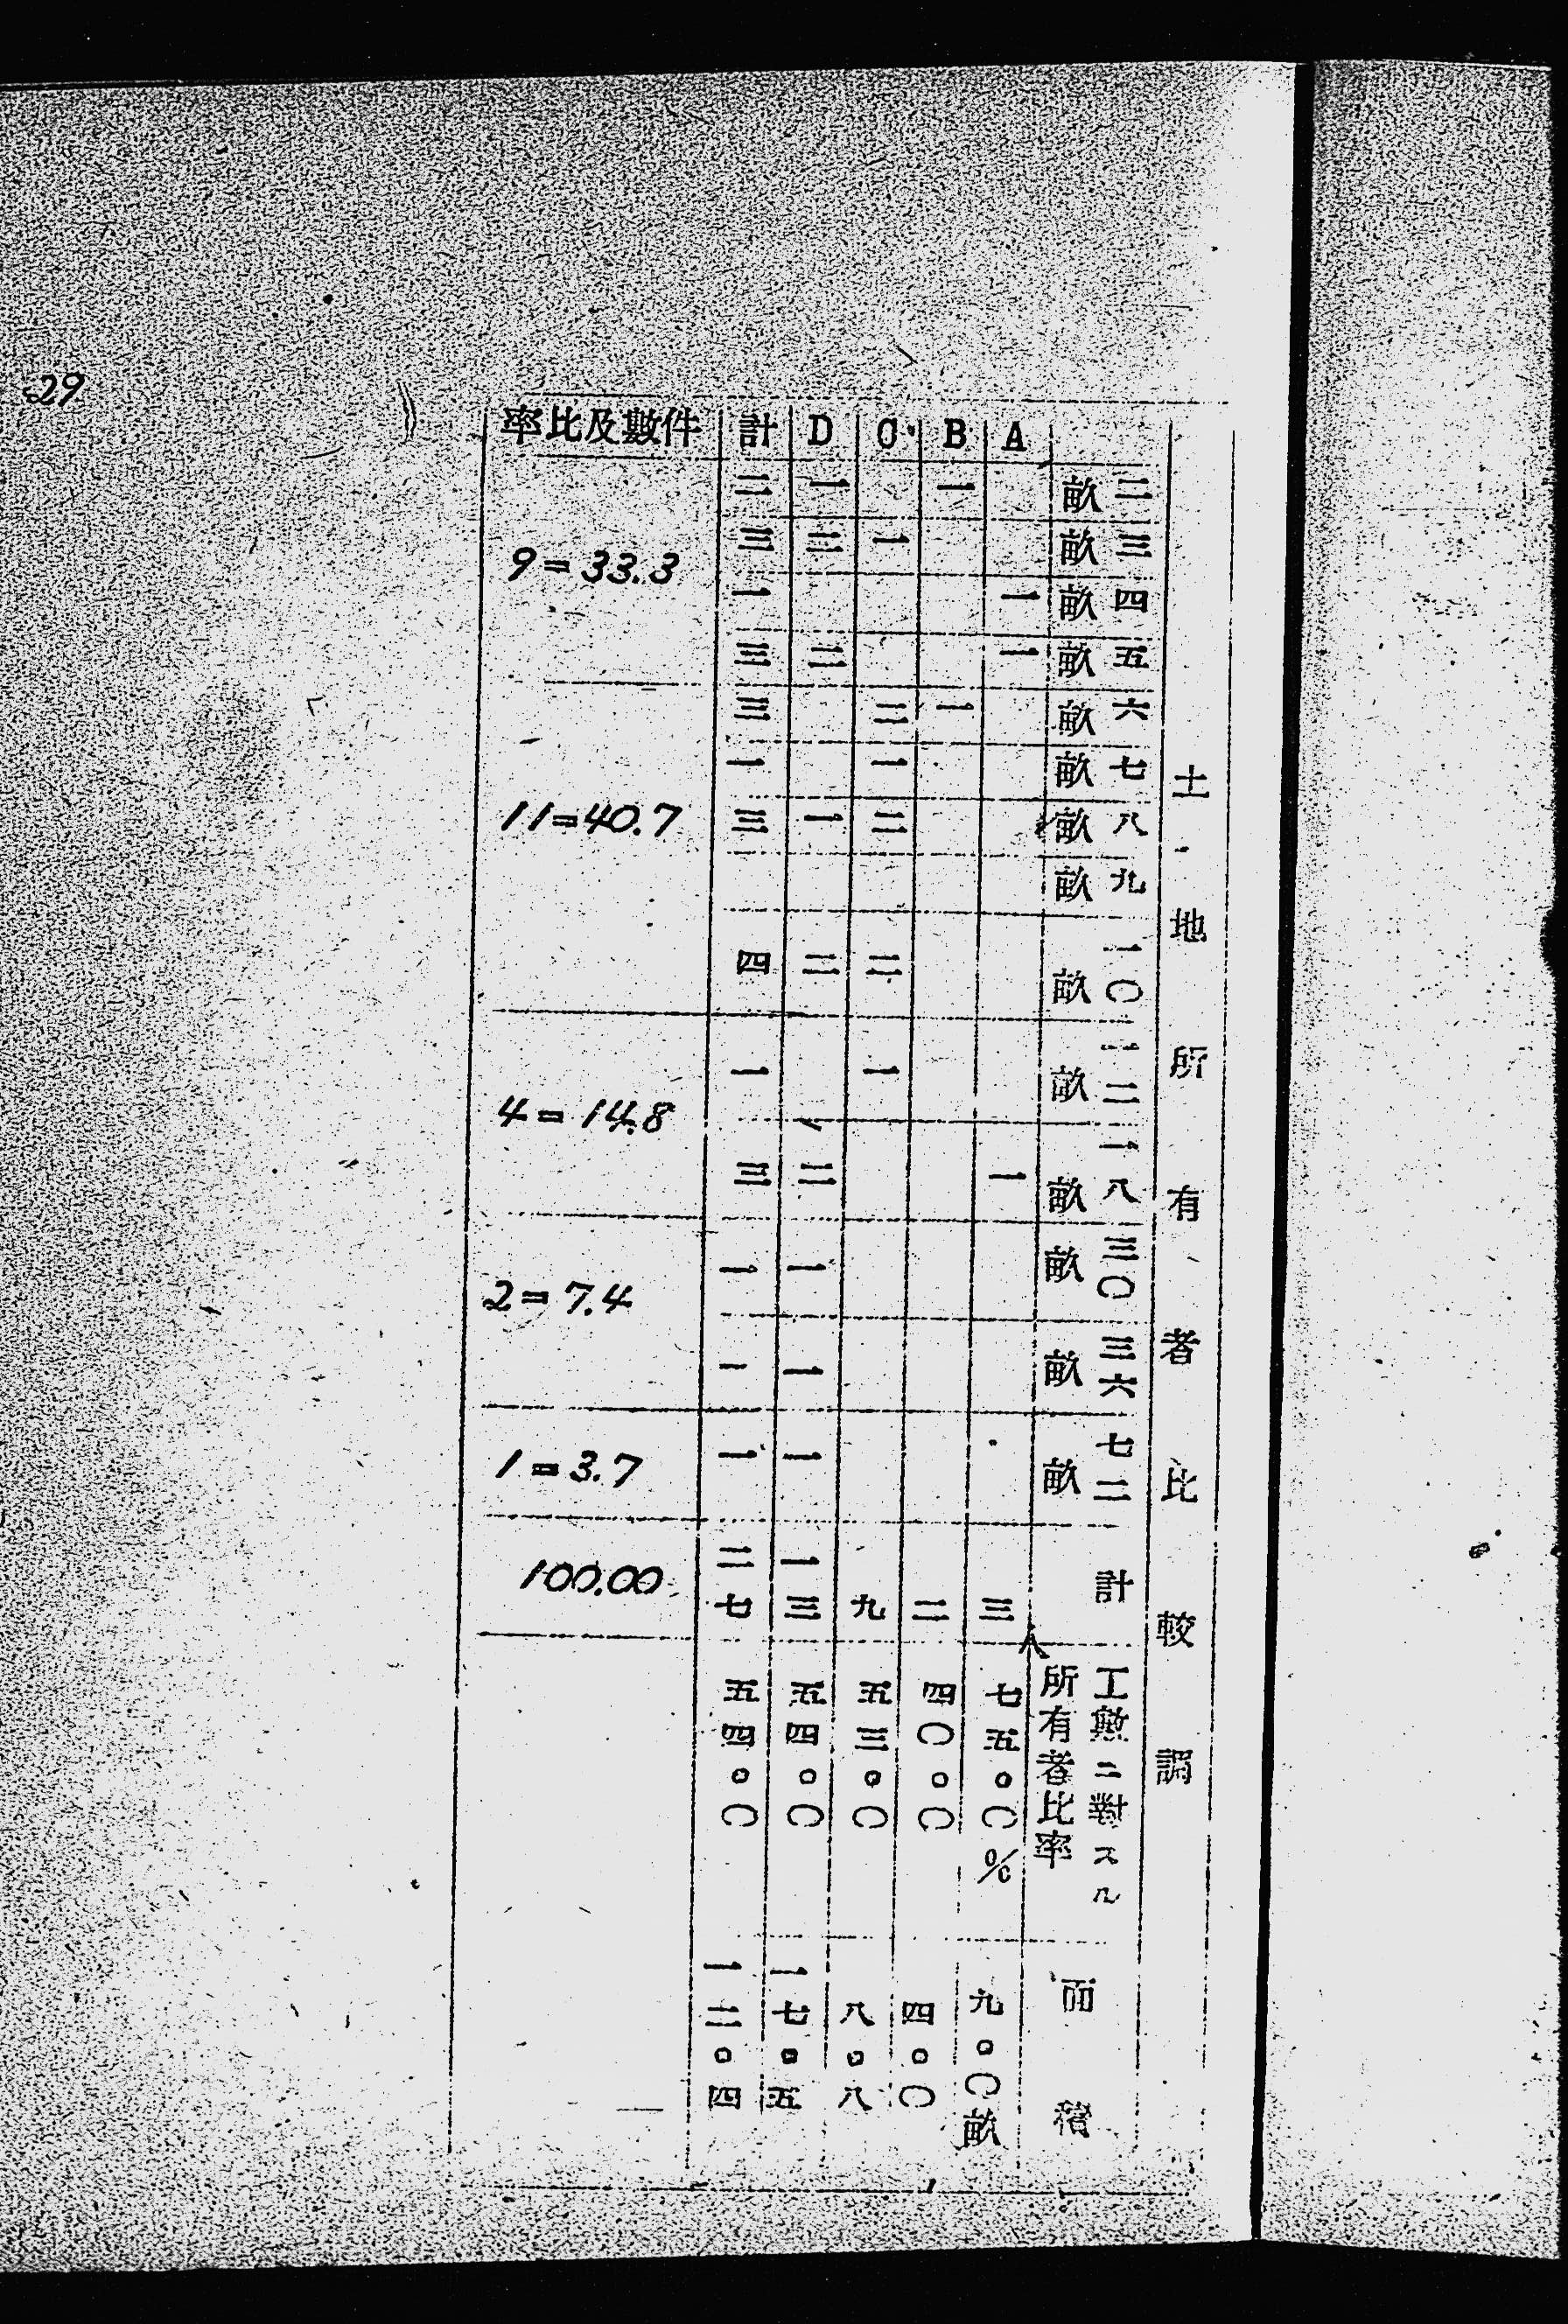 土地所有者比較調
二畝 三畝 四畝 五畝 六畝 七畝 八畝 九畝 一〇畝 一二畝 一八畝 三〇畝 三六畝 七二畝 計 工數ニ對スル所有者比率 面積
A 一 一 一 三人 七五。〇% 九。〇畝
B 一 一 二 四〇。〇 四。〇
C 一 二 一 二 二 一 九 五三。〇 八。八
D 一 二 二 一 二 二 一 一 一 一三 五四。〇 一七。五
計 二 三 一 三 三 一 三 四 一 三 一 一 一 二七 五四。〇 一二。四
件數及比率
9=33.3
11=40.7
4=14.8
2=7.4
1=3.7
100.00
29